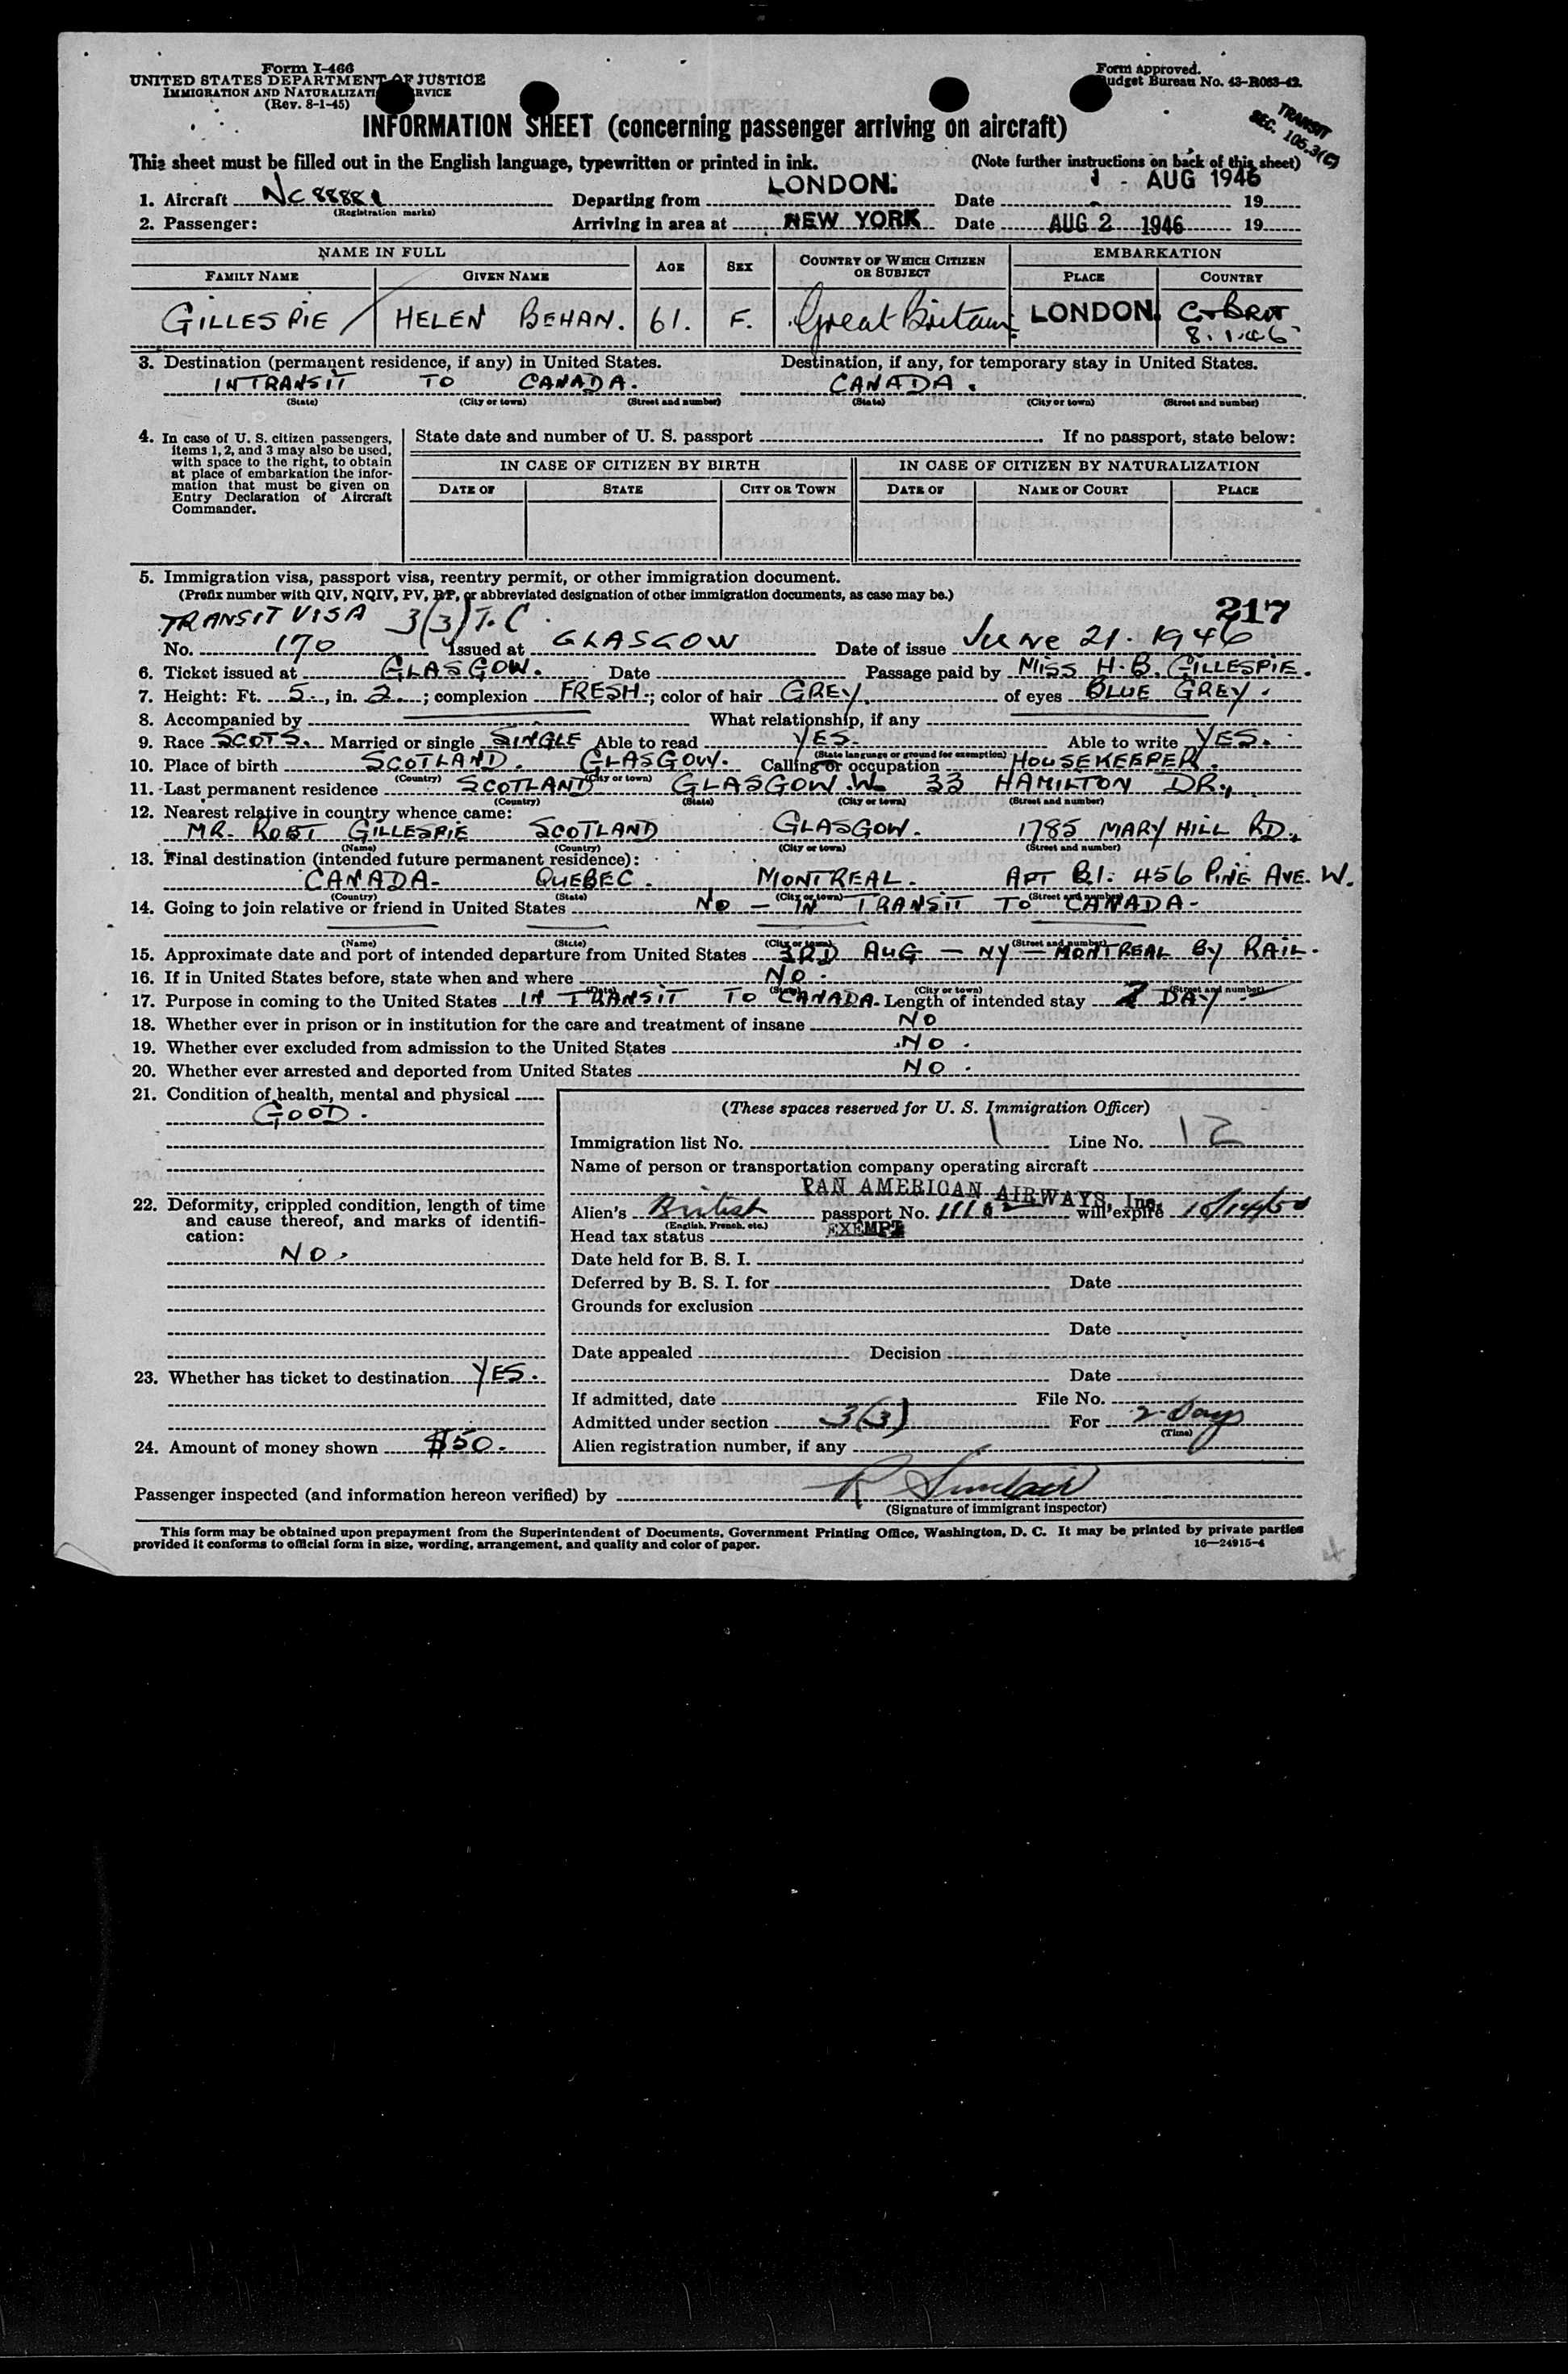 Form I-466
UNITED STATES DEPARTMENT OF JUSTICE
IMMIGRATION AND NATURALIZATION SERVICE
(Rev. 8-1-45)
Form approved.
Budget Bureau No. 43-R063-42.
TRANSIT
SEC. 105.3(C)
INFORMATION SHEET (concerning passenger arriving on aircraft)
This sheet must be filled out in the English language, typewritten or printed in ink. (Note further instructions on back of this sheet)
1. Aircraft NC 88881 Departing from LONDON. Date 1 - AUG 1946 19
(Registration marks)
2. Passenger: Arriving in area at NEW YORK Date AUG 2 1946 19
NAME IN FULL AGE SEX COUNTRY OF WHICH CITIZEN OR SUBJECT EMBARKATION
FAMILY NAME GIVEN NAME PLACE COUNTRY
GILLESPIE HELEN BEHAN. 61. F. Great Britain LONDON. Gt BRIT
8.1.46
3. Destination (permanent residence, if any) in United States. Destination, if any, for temporary stay in United States.
IN TRANSIT TO CANADA. CANADA.
(State) (City or town) (Street and number) (State) (City or town) (Street and number)
4. In case of U. S. citizen passengers, items 1, 2, and 3 may also be used, with space to the right, to obtain at place of embarkation the information that must be given on Entry Declaration of Aircraft Commander.
State date and number of U. S. passport If no passport, state below:
IN CASE OF CITIZEN BY BIRTH IN CASE OF CITIZEN BY NATURALIZATION
DATE OF STATE CITY OR TOWN DATE OF NAME OF COURT PLACE
5. Immigration visa, passport visa, reentry permit, or other immigration document.
(Prefix number with QIV, NQIV, PV, RP, or abbreviated designation of other immigration documents, as case may be.)
TRANSIT VISA 3(3) T.C. 217
No. 170 Issued at GLASGOW Date of issue June 21. 1946
6. Ticket issued at GLASGOW. Date Passage paid by MISS H.B. GILLESPIE.
7. Height: Ft. 5, in. 2; complexion FRESH; color of hair GREY. of eyes BLUE GREY.
8. Accompanied by What relationship, if any
9. Race SCOTS. Married or single SINGLE Able to read YES. Able to write YES.
(State language or ground for exemption)
10. Place of birth SCOTLAND. GLASGOW. Calling or occupation HOUSEKEEPER.
(Country) (City or town)
11. Last permanent residence SCOTLAND GLASGOW.W. 33 HAMILTON DR.,
(Country) (State) (City or town) (Street and number)
12. Nearest relative in country whence came:
MR. ROBT GILLESPIE SCOTLAND GLASGOW. 1785 MARY HILL RD.,
(Name) (Country) (City or town) (Street and number)
13. Final destination (intended future permanent residence):
CANADA- QUEBEC. MONTREAL. APT B1. 456 PINE AVE. W.
(Country) (State) (City or town) (Street and number)
14. Going to join relative or friend in United States NO - IN TRANSIT TO CANADA-
(Name) (State) (City or town) (Street and number)
15. Approximate date and port of intended departure from United States 3RD AUG - NY - MONTREAL BY RAIL.
16. If in United States before, state when and where NO.
(Date) (State) (City or town) (Street and number)
17. Purpose in coming to the United States IN TRANSIT TO CANADA. Length of intended stay 2 DAY
18. Whether ever in prison or in institution for the care and treatment of insane NO
19. Whether ever excluded from admission to the United States NO.
20. Whether ever arrested and deported from United States NO.
21. Condition of health, mental and physical
GOOD.
22. Deformity, crippled condition, length of time and cause thereof, and marks of identification:
NO.
23. Whether has ticket to destination YES.
24. Amount of money shown $50.
(These spaces reserved for U. S. Immigration Officer)
Immigration list No. 1 Line No. 12
Name of person or transportation company operating aircraft
PAN AMERICAN AIRWAYS, Inc.
Alien's British passport No. will expire
(English, French, etc.)
Head tax status EXEMPT
Date held for B. S. I.
Deferred by B. S. I. for Date
Grounds for exclusion
Date
Date appealed Decision
Date
If admitted, date File No.
Admitted under section 3(3) For 2 days
(Time)
Alien registration number, if any
Passenger inspected (and information hereon verified) by R Sinclair
(Signature of immigrant inspector)
This form may be obtained upon prepayment from the Superintendent of Documents, Government Printing Office, Washington, D. C. It may be printed by private parties
provided it conforms to official form in size, wording, arrangement, and quality and color of paper. 16—24915-4